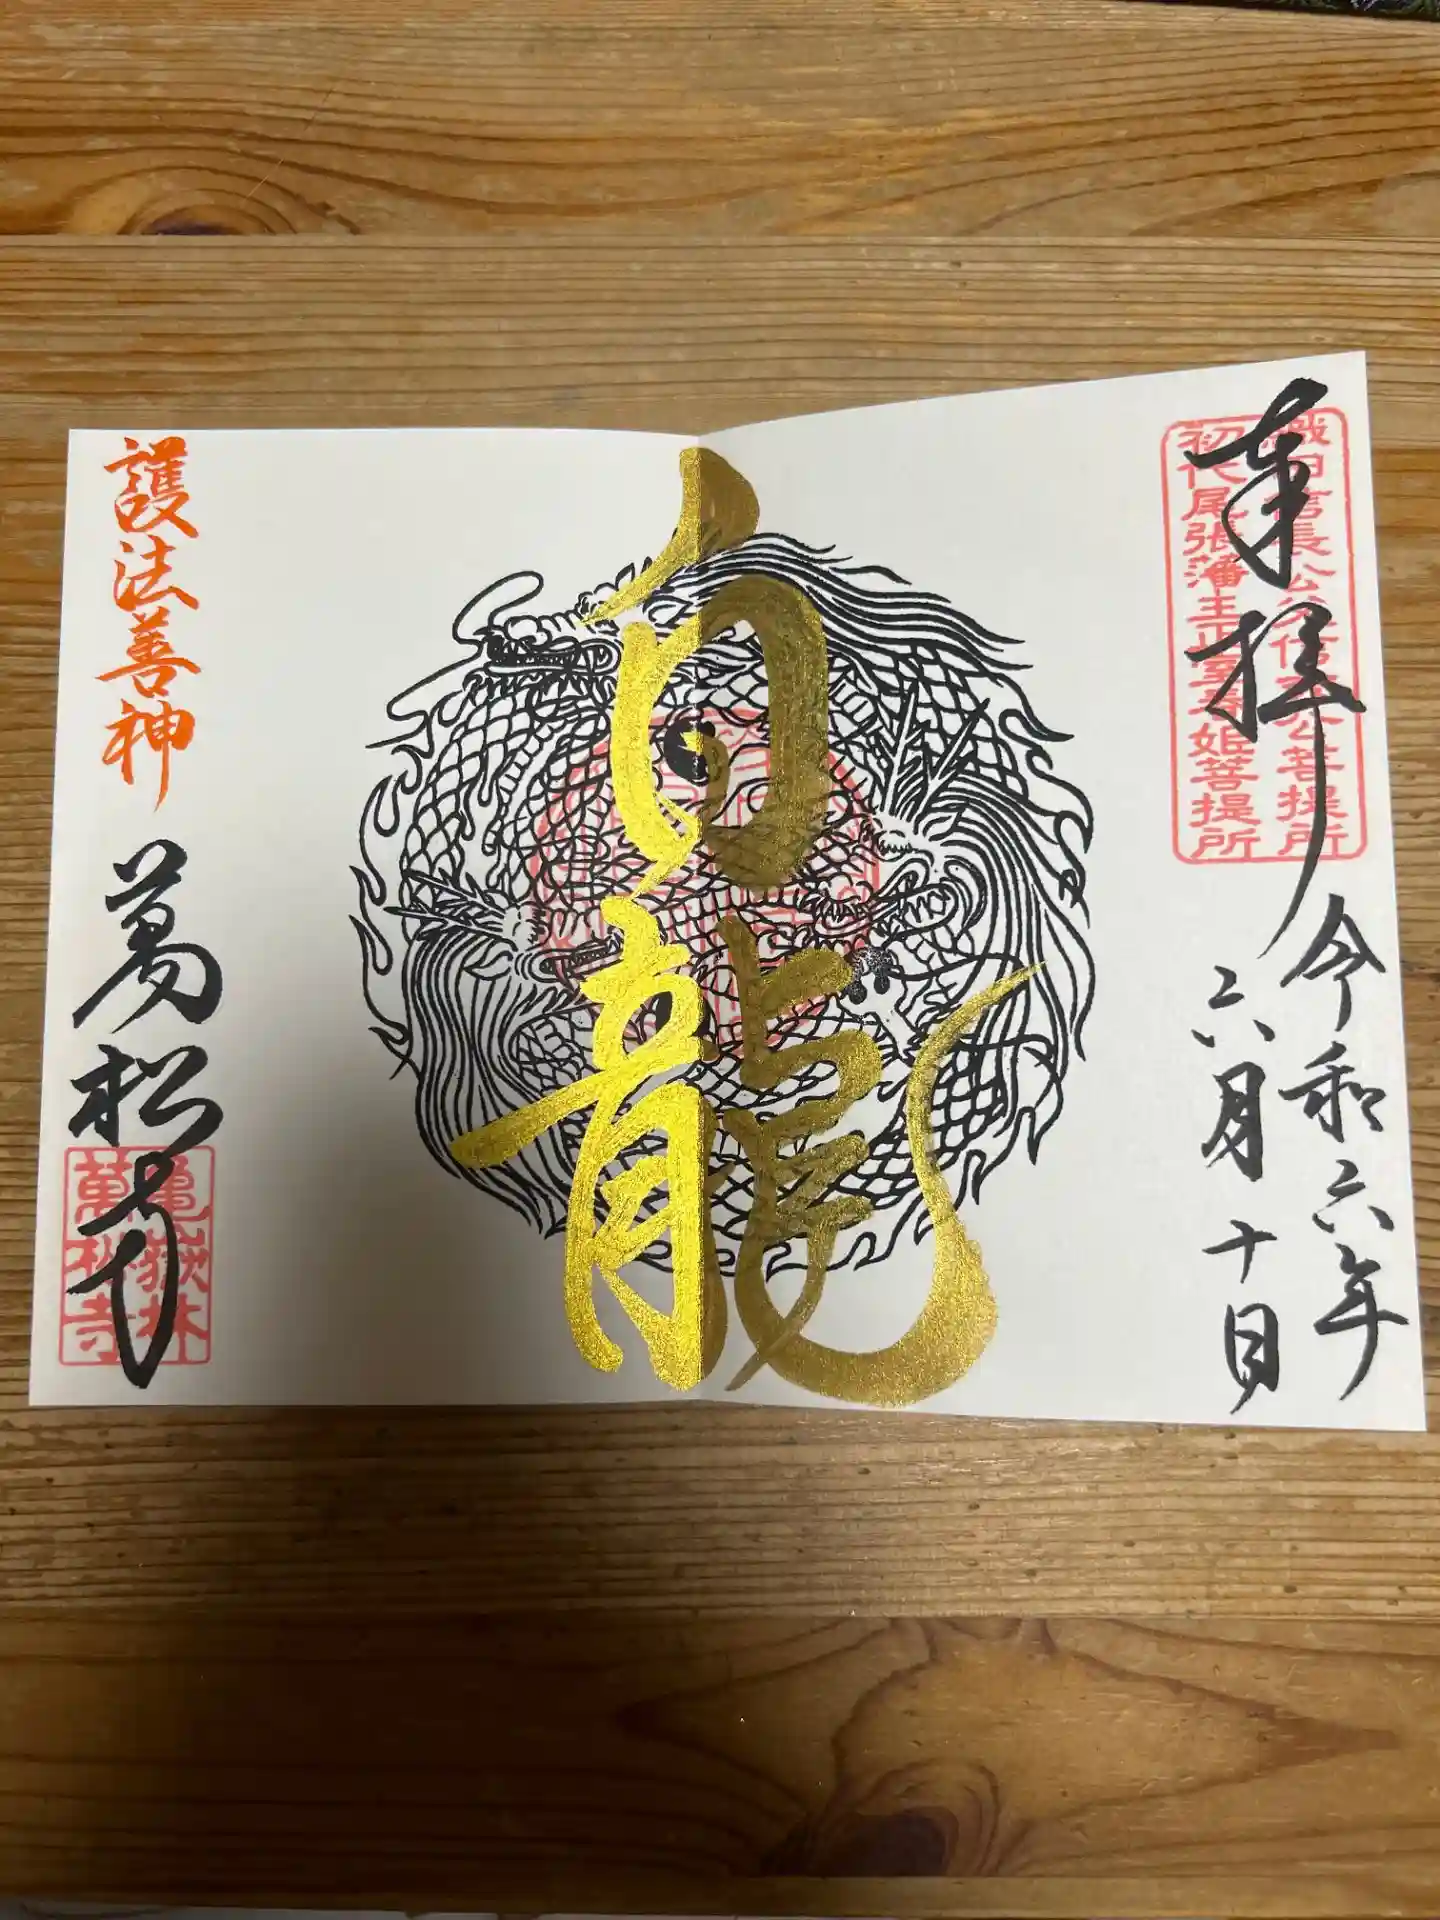 奉拝
織田信長公父信秀公菩提所
初代尾張藩主正室春姫菩提所
令和六年
六月十日
白龍
護法善神
萬松寺
亀嶽林
萬松寺